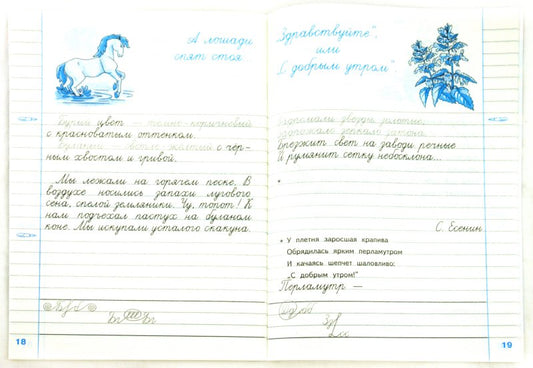 А лошади
спят стоя
Бурый цвет — тёмно-коричневый
с красноватым оттенком.
Буланый — светло-жёлтый с чёр-
ным хвостом и гривой.
Мы лежали на горячем песке. В
воздухе носились запахи лугового
сена, спелой земляники. Чу, топот! К
нам подъехал пастух на буланом
коне. Мы искупали усталого скакуна.
18
"Здравствуйте",
или
"С добрым утром"
Задремали звёзды золотые,
Задрожало зеркало затона,
Брезжит свет на заводи речные
И румянит сетку небосклона...
С. Есенин
* У плетня заросшая крапива
Обрядилась ярким перламутром
И качаясь шепчет шаловливо:
"С добрым утром!"
Перламутр —
19